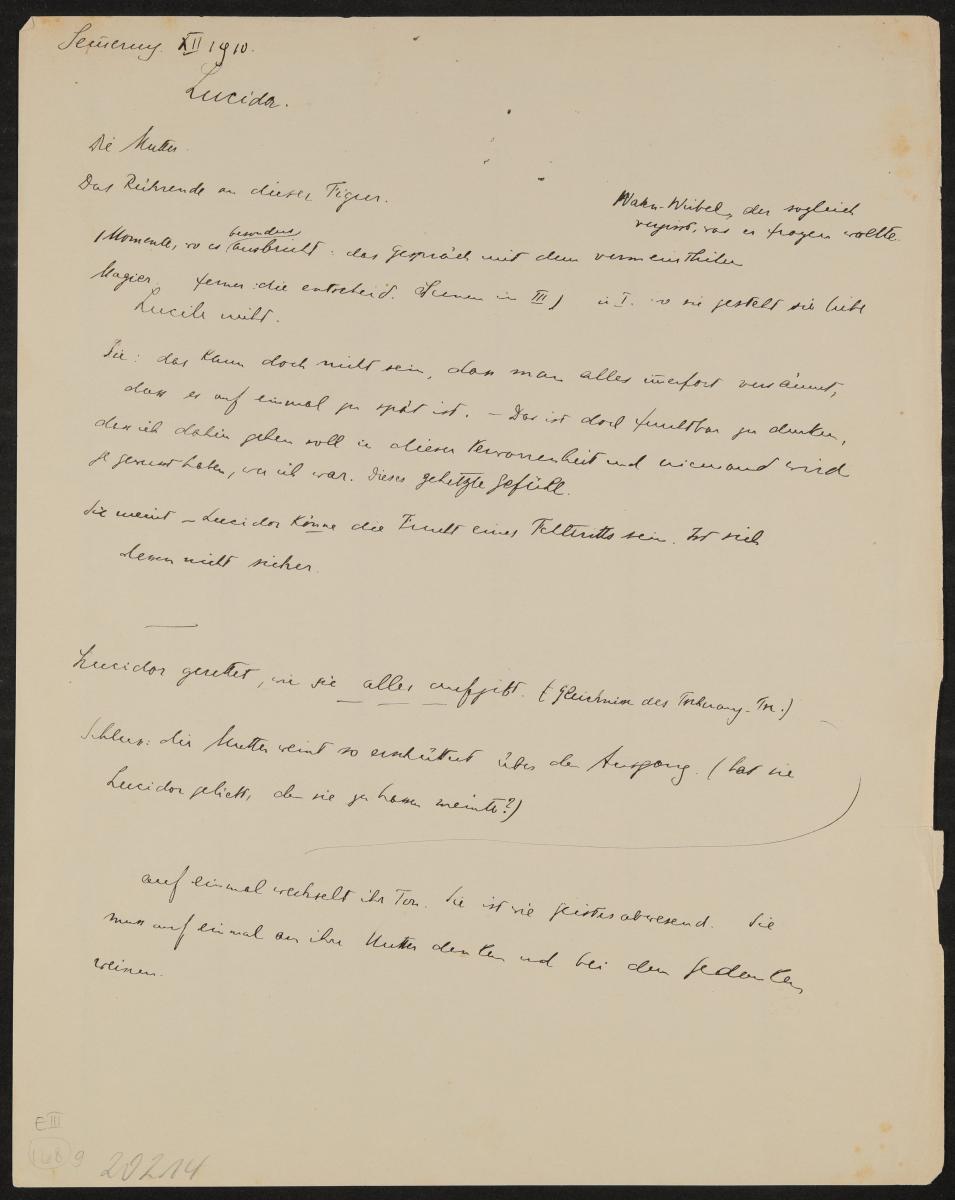 Semering. XII 1910.
Lucidor.
Die Mutter.
Das Rührende an dieser Figur.
Wahn-Wirbel, der sogleich
vergisst, was er fragen wollte.
(Momente, wo es besonders ausbricht: das Gespräch mit dem vermeintlichen
Magier, ferner: die entscheid. Scenen in III) in I. wo sie gesteht sie liebe
Lucile nicht.
Sie: das kann doch nicht sein, dass man alles immerfort versäumt,
dass es auf einmal zu spät ist. – Das ist doch furchtbar zu denken,
dass ich dahin gehen soll in dieser Verworrenheit und niemand wird
je gewusst haben, wer ich war. Dieses gehetzte Gefühl.
Sie meint – Lucidor könne die Frucht eines Fehltritts sein. Ist sich
dessen nicht sicher.
Lucidor gerettet, wie sie alles aufgibt. (Gleichniss des)
Schluss: die Mutter weint so erschüttert über den Ausgang. (hat sie
Lucidor geliebt, den sie zu hassen meinte?)
auf einmal wechselt ihr Ton. Sie ist wie geistesabwesend. Sie
muss auf einmal an ihre Mutter denken und bei dem Gedanken
weinen.
E III
168 9
20214